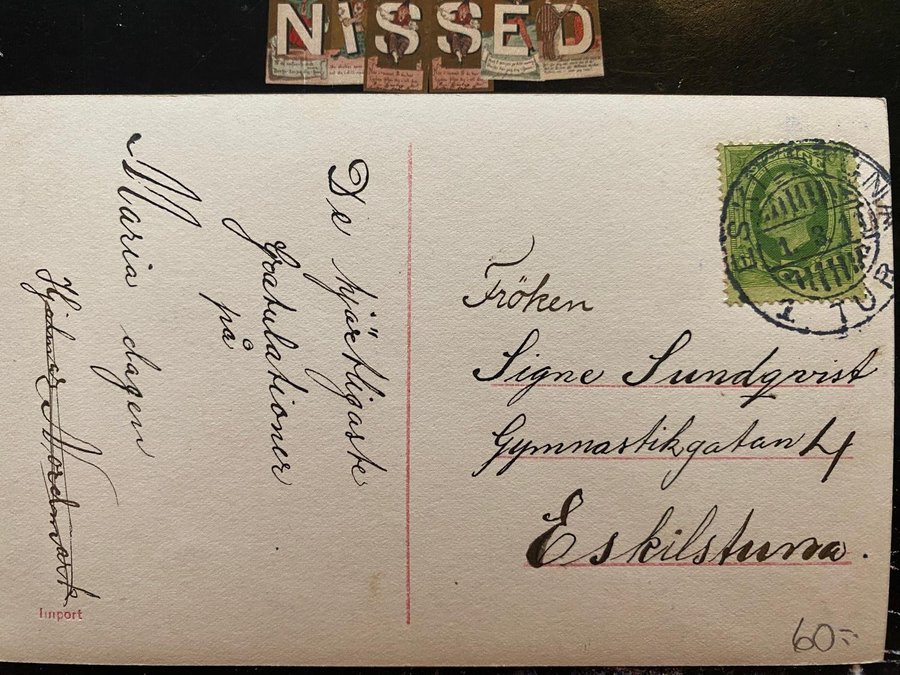 NISSED
De hjärtligaste
Gratulationer
på
Maria dagen
Hjalmar Nordmark
Import
Fröken
Signe Sundqvist
Gymnastikgatan 4
Eskilstuna.
60:-